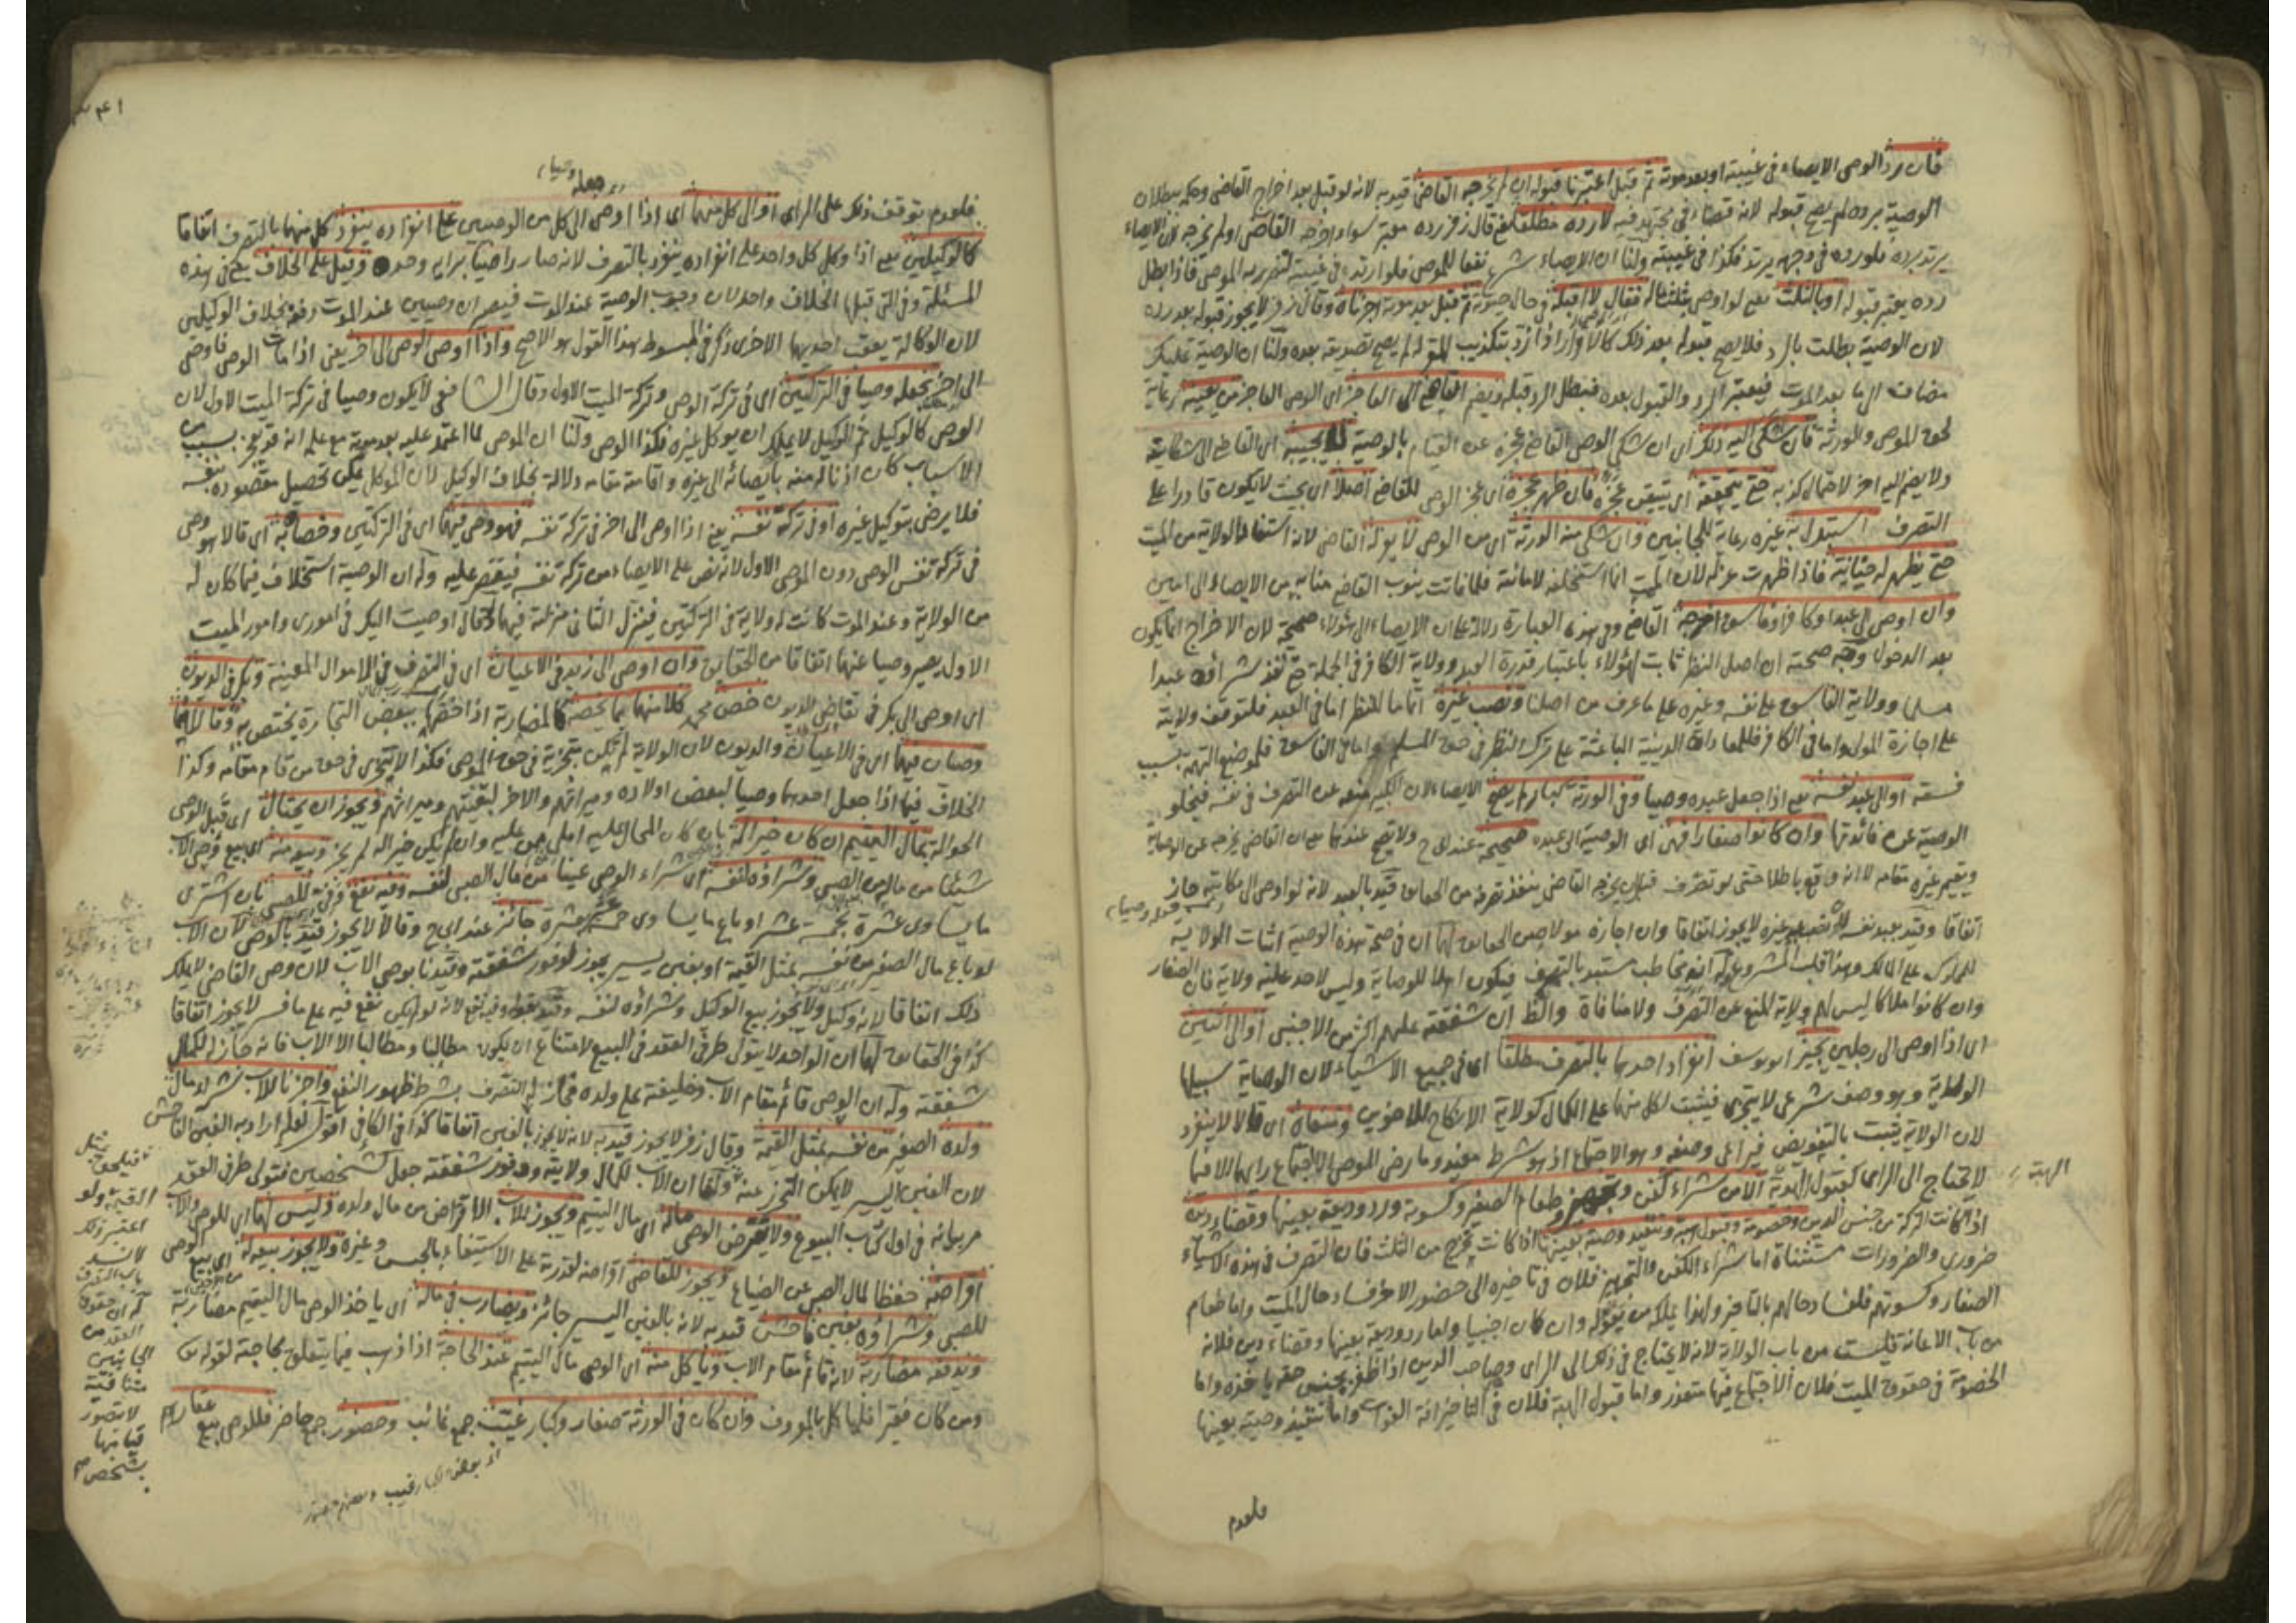 فان رد الوصي الايصاء في غيبته او بعد موته ثم قبل اعتبرنا قبوله ان لم يخرجه القاضي قيد به لانه لو قبل بعد اخراج القاضي وحكمه ببطلان
الوصية برده لم يصح قبوله لانه قضاء في مجتهد فيه لا رده مطلقا يعني قال زفر رده معتبر سواء اخرجه القاضي او لم يخرجه لان الايصاء
يرتد برده فلو رده في وجهه يرتد فكذا في غيبته ولنا ان الايصاء شرع نفعا للموصي فلو ارتد في غيبته لتضرر به الموصي فاذا بطل
رده يعتبر قبوله او بالثلث يعني لو اوصى بثلث ماله فقال لا اقبله في حال حيوته ثم قبل بعد موته اجزناه وقال زفر لا يجوز قبوله بعد رده
لان الوصية بطلت بالرد فلا يصح قبوله بعد ذلك كالاقرار اذا رد بتكذيب المقر له لم يصح تصديقه بعده ولنا ان الوصية تمليك
مضاف الى ما بعد الموت فيعتبر الرد والقبول بعده فبطل الرد قبله ويضم القاضي الى العاجز اى الوصي العاجز من يعينه رعاية
لحق الموصي والورثة فان شكى اليه ذلك اى ان شكى الوصي القاضي عجزه عن القيام بالوصية لا يجيبه اى القاضي الى شكايته
ولا يضم اليه اخر لاحتمال كذبه حتى يتحققه اى يتيقن عجزه فان ظهر عجزه اى عجز الوصي للقاضي اصلا اى بحيث لا يكون قادرا على
التصرف استبدل به غيره رعاية للجانبين وان شكى منه الورثة اى من الوصي لا يعزله القاضي لانه استفاد الولاية من الميت
حتى يظهر له خيانته فاذا ظهرت عزله لان الميت انما استخلفه لامانته فلما فاتت ينوب القاضي منابه من الايصاء الى امين
وان اوصى الى عبد او كافر او فاسق اخرجه القاضي وفي هذه العبارة دلالة على ان الايصاء الى هؤلاء صحيحة لان الاخراج انما يكون
بعد الدخول وجه صحته ان اصل النظر ثابت لهؤلاء باعتبار قدرة العبد وولاية الكافر في الجملة حتى نفذ شراؤه عبدا
مسلما وولاية الفاسق على نفسه وغيره على ما عرف من اصلنا ونصب غيره اتماما للنظر اما في العبد فلتوقف ولايته
على اجازة المولى واما في الكافر فللمعاداة الدينية الباعثة على ترك النظر في حق المسلم واما في الفاسق فلموضع التهمة بسبب
فسقه او الى عبد نفسه يعني اذا جعل عبده وصيا وفي الورثة كبار لم يصح الايصاء لان الكبير منعه عن التصرف في نفسه فيخلو
الوصية عن فائدتها وان كانوا صغارا فهى اى الوصية الى عبده صحيحة عند ابي ح ولا يصح عندهما يعني ان القاضي يخرجه عن الوصاية
ويقيم غيره مقامه لا انه واقع باطلا حتى لو تصرف قبل ان يخرجه القاضي ينفذ تصرفه من الحقايق قيد بالعبد لانه لو اوصى الى مكاتبه جاز
اتفاقا وقيد بعبد نفسه لانه بعبد غيره لا يجوز اتفاقا وان اجازه مولاه من الحقايق لهما ان في صحة هذه الوصية اثبات الولاية
للمملوك على المالك وهذا قلب المشروع وله انه مخاطب مستبد بالتصرف فيكون اهلا للوصاية وليس لاحد عليه ولاية فان الصغار
وان كانوا ملاكا ليس لهم ولاية المنع عن التصرف ولا منافاة والظ ان شفقته عليهم اكثر من الاجنبي او الى اثنين
اى اذا اوصى الى رجلين يجيز ابو يوسف انفراد احدهما بالتصرف مطلقا اى في جميع الاشياء لان الوصاية سبيلها
الولاية وهو وصف شرعي لا يتجزى فيثبت لكل منهما على الكمال كولاية الانكاح للاخوين ومنعاه اى قالا لا ينفرد
لان الولاية تثبت بالتفويض فيراعى وصفه وهو الاجتماع اذ هو شرط مفيد وما رضي الموصي الا باجتماع رايهما الا فيما
لا يحتاج الى الراى كقبول الهدية الا من شراء كفن وتجهيز وطعام الصغير وكسوته ورد وديعة بعينها وقضاء دين
الهبة
اذا كانت التركة من جنس الدين وخصومة وقبول هبة وتنفيذ وصية بعينها اذا كانت تخرج من الثلث فان التصرف في هذه الاشياء
ضروري والضرورات مستثناة اما شراء الكفن والتجهيز فلان في تاخيره الى حضور الاخر فساد حال الميت واما طعام
الصغار وكسوتهم فلفساد حالهم بالتاخير ولهذا يملكه من يعوله وان كان اجنبيا واما رد وديعة بعينها وقضاء دين فلانه
من باب الاعانة فليست من باب الولاية لانه لا يحتاج في ذلك الى الراى وصاحب الدين اذا ظفر بجنس حقه ياخذه واما
الخصومة في حقوق الميت فلان الاجتماع فيها متعذر واما قبول الهبة فلان في التاخير افة الفوات واما تنفيذ وصية بعينها
فلعدم
٣٤١
جعله وصيا
فلعدم توقف ذلك على الراى او الى كل منهما اى اذا اوصى الى كل من الوصيين على انفراده ينفرد كل منهما بالتصرف اتفاقا
كالوكيلين يعني اذا وكل كل واحد على انفراده ينفرد بالتصرف لانه صار راضيا برايه وحده وقيل على الخلاف يعني في هذه
المسئلة وفي التي قبلها الخلاف واحد لان وجوب الوصية عند الموت فيصيران وصيين عند الموت دفعة بخلاف الوكيلين
لان الوكالة يعقب احديهما الاخرى ذكر في المبسوط هذا القول هو الاصح واذا اوصى الوصي الى اخر يعني اذا مات الوصي فاوصى
الى اخر نجعله وصيا في التركتين اى في تركة الوصي وتركة الميت الاول وقال الشافعي لا يكون وصيا في تركة الميت الاول لان
الوصي كالوكيل ثم الوكيل لا يملك ان يوكل غيره فكذا الوصي ولنا ان الموصي لما اعتمد عليه بعد موته مع علمه انه قد يعجز بسبب من
الاسباب كان اذنا له منه بايصائه الى غيره واقامته مقامه دلالة بخلاف الوكيل لان الموكل يمكن تحصيل مقصوده بنفسه
فلا يرضى بتوكيل غيره او في تركة نفسه يعني اذا اوصى الى اخر في تركة نفسه فهو وصي فيهما اى في التركتين وخصاه به اى قالا هو وصي
في تركة نفس الوصي دون الموصي الاول لانه نص على الايصاء من تركة نفسه فيقتصر عليه وله ان الوصية استخلاف فيما كان له
من الولاية وعند الموت كانت له ولاية في التركتين فينزل الثاني منزلته فيهما ولو قال اوصيت اليك في اموري وامور الميت
الاول يصير وصيا عنهما اتفاقا من الحقايق وان اوصى الى زيد في الاعيان اى في التصرف في الاموال المعينة وبكر في الديون
اى اوصى الى بكر في تقاضي الديون خص محمد كلا منهما بما يخصه كالمضاربة اذا خصها ببعض التجارة يختص به وقالا هما
وصيان فيهما اى في الاعيان والديون لان الولاية لم تكن متجزية في حق الموصي فكذا لا يتجزى في حق من قام مقامه وكذا
الخلاف فيما اذا جعل احدهما وصيا لبعض اولاده وميراثهم والاخر لبقيتهم وميراثهم ويجوز ان يحتال اى قبل الوصي
الحوالة بمال اليتيم ان كان خيرا له بان كان المحال عليه املى من عليه وان لم يكن خيرا له لم يجز وبيعه منه اى بيع وصي الاب
شيئا من ماله من الصبي وشراؤه لنفسه اى شراء الوصي عينا من مال الصبي لنفسه وفيه نفع للصبي بان اشترى
ما يساوى عشرة بخمسة عشر او باع ما يساوى خمسة عشر بعشرة جائز عند ابي ح وقالا لا يجوز قيد بالوصي لان الاب
لو باع مال الصغير من نفسه بمثل القيمة او بغبن يسير يجوز لوفور شفقته وقيدنا بوصي الاب لان وصي القاضي لا يملك
ذلك اتفاقا لانه وكيل ولا يجوز بيع الوكيل وشراؤه لنفسه وقيد بقوله وفيه نفع لانه لو لم يكن نفع فيه على ما فسر لا يجوز اتفاقا
كذا في الحقايق لهما ان الواحد لا يتولى طرفي العقد في البيع لامتناع ان يكون مطالبا ومطالبا الا الاب فانه جاز له لكمال
شفقته وله ان الوصي قائم مقام الاب وخليفته على ولده فجاز له التصرف بشرط ظهور النفع واجزنا للاب شراء مال
ولده الصغير من نفسه بمثل القيمة وقال زفر لا يجوز قيد به لانه لا يجوز بالغبن اتفاقا كذا في الكافي اقول لعله اراد به الغبن الفاحش
لان الغبن اليسير لا يمكن التحرز عنه ولنا ان الاب لكمال ولايته ووفور شفقته جعل كشخصين فتولى طرفي العقد
مر بيانه في اول كتاب البيوع ولا يقرض الوصي ماله اى مال اليتيم ويجوز للاب الاقراض من مال ولده وليس لهما اى للوصي والاب
اقراضه حفظا لمال الصبي عن الضياع ويجوز للقاضي اقراضه لقدرته على الاستيفاء بالحبس وغيره ولا يجوز بيعه له اى بيع الوصي
للصبي وشراؤه بغبن فاحش قيد به لانه بالغبن اليسير جائز ويضارب في ماله اى ياخذ الوصي مال اليتيم مضاربة
ويدفعه مضاربة لانه قائم مقام الاب وياكل منه اى الوصي مال اليتيم عند الحاجة اذا ذهب فيما يتعلق بحاجته لقوله تعالى
ومن كان فقيرا فلياكل بالمعروف وان كان في الورثة صغار وكبار غيب جمع غائب وحضور جمع حاضر فللوصي بيع عقارهم
القيمة ولو
اعتبر ذلك
لانسد
باب التصرف
له ان حقوق
العقد من
الجانبين
متنافية
لا يتصور
قيامها
بشخص